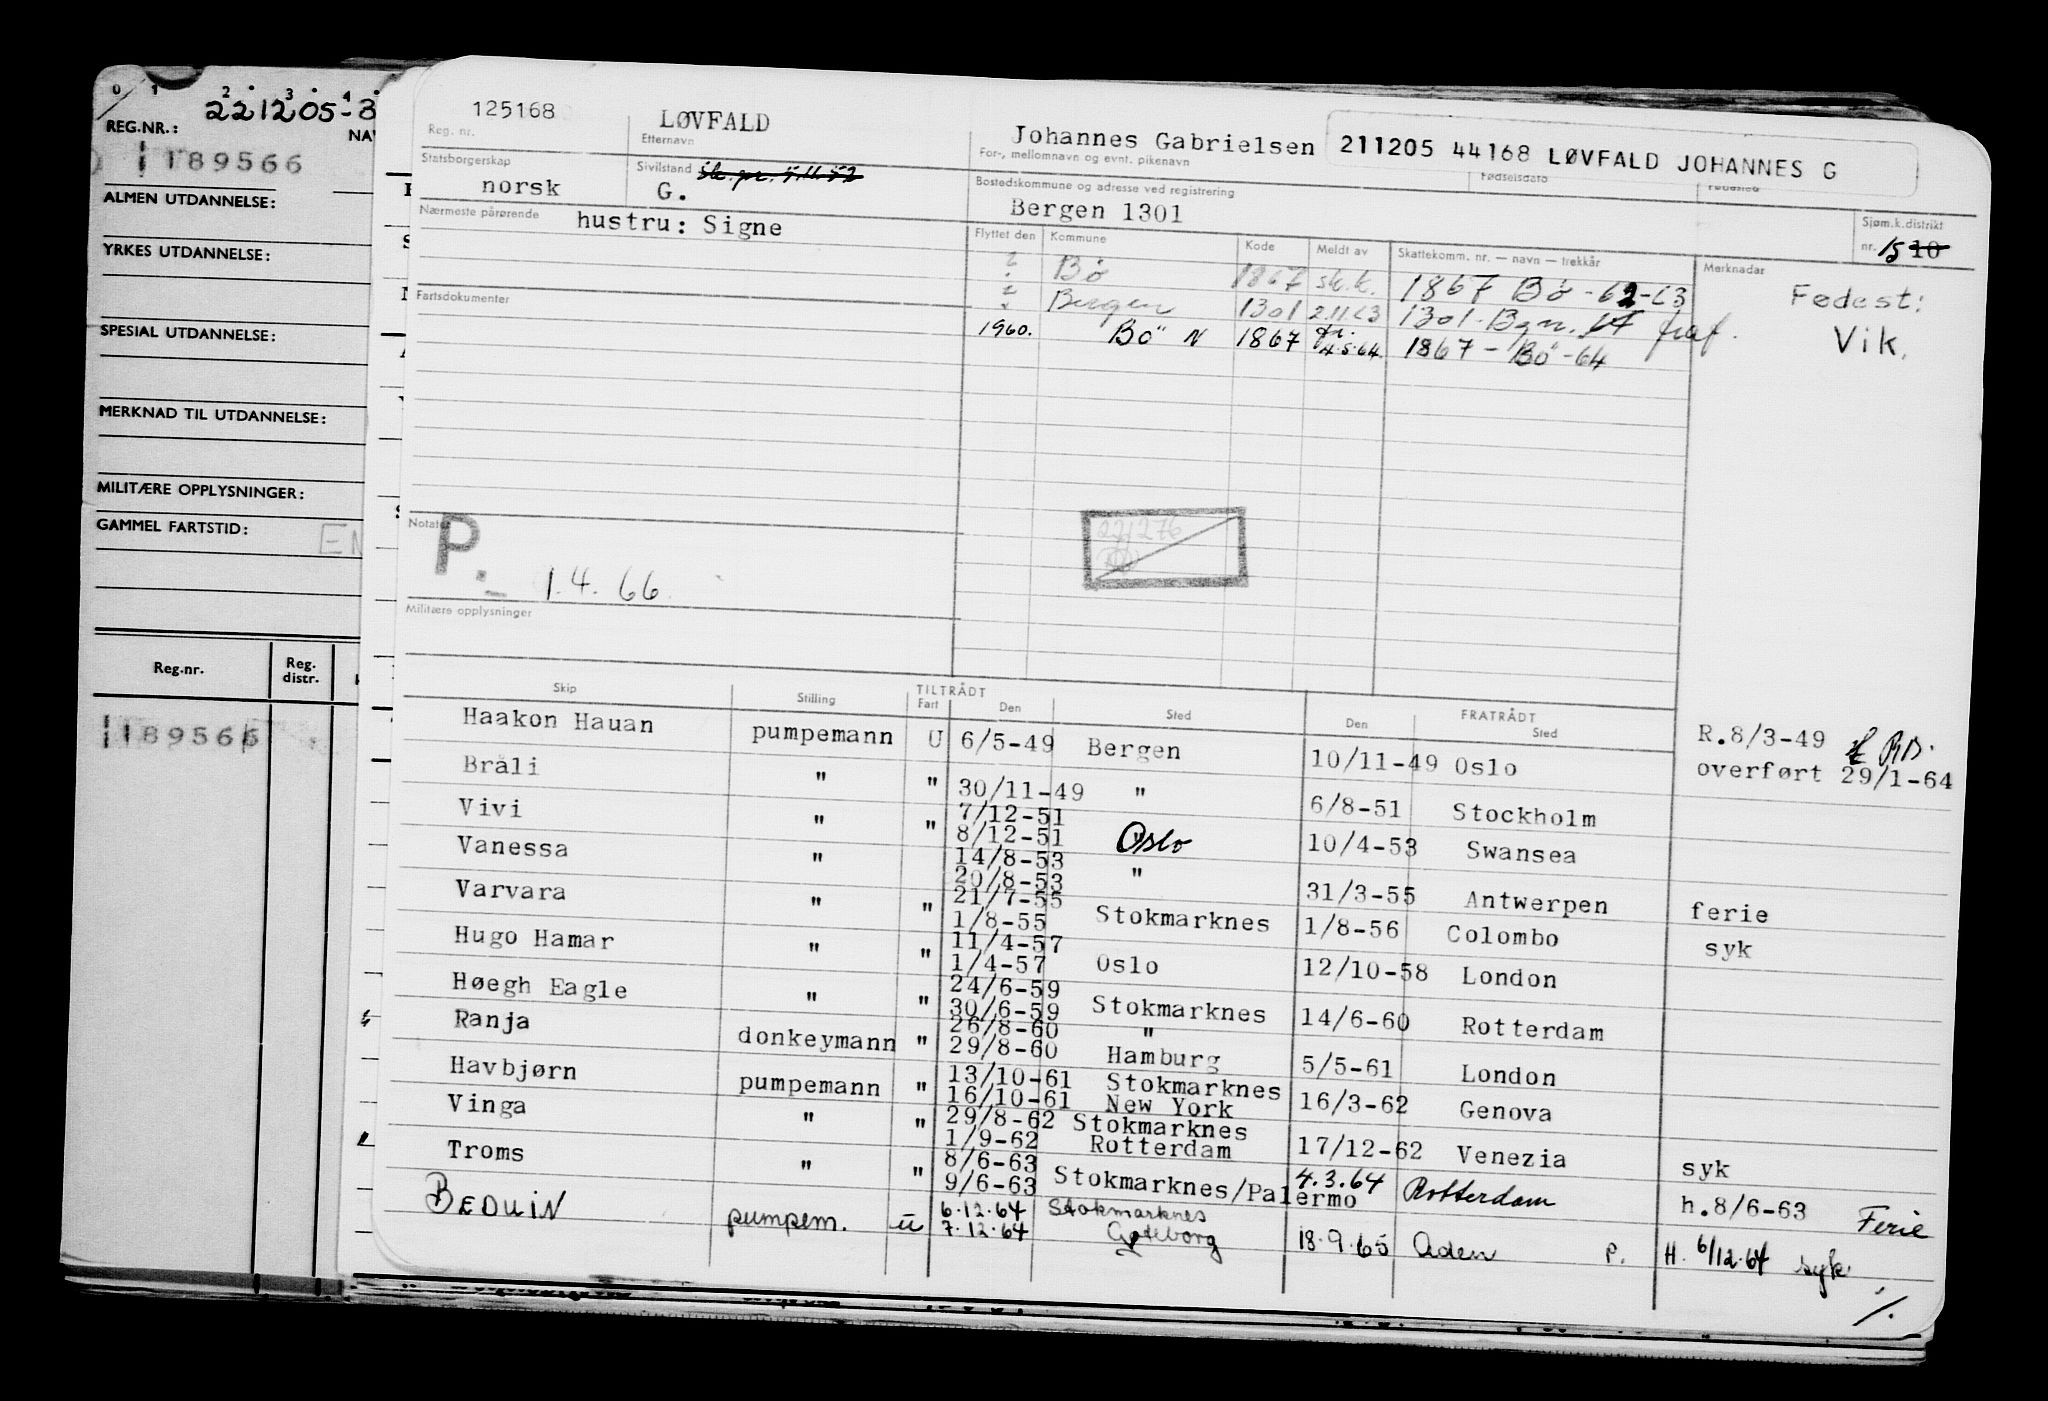 0 1 2 3 4
221205-3
REG.NR.:
NAV
1189566
ALMEN UTDANNELSE:
YRKES UTDANNELSE:
SPESIAL UTDANNELSE:
MERKNAD TIL UTDANNELSE:
MILITÆRE OPPLYSNINGER:
GAMMEL FARTSTID:
EN
Reg.nr.
Reg. distr.
1189566
125168 LØVFALD Johannes Gabrielsen 211205 44168 LØVFALD JOHANNES G
Reg. nr. Etternavn For-, mellomnavn og evnt. pikenavn Fødselsdato Fødested
Statsborgerskap Sivilstand Bostedskommune og adresse ved registrering
norsk G. Bergen 1301
Nærmeste pårørende hustru: Signe
Sjøm.k.distrikt
nr. 15 10
Flyttet den Kommune Kode Meldt av Skattekomm. nr. — navn — trekkår Merknader
? Bø 1867 sk.k. 1867 Bø -62-63
Fødest:
? Bergen 1301 2.11.63 1301 - Bgn. fraf.
Vik.
1960. Bö N 1867 4.5.64. 1867 - Bö -64
Fartsdokumenter
Notater
P.
1.4.66.
221276
Militære opplysninger
Skip Stilling TILTRÅDT FRATRÅDT
Fart Den Sted Den Sted
Haakon Hauan pumpemann U 6/5-49 Bergen 10/11-49 Oslo R.8/3-49
overført 29/1-64
Bråli " " 30/11-49 " 6/8-51 Stockholm
Vivi " " 7/12-51
8/12-51 Oslo 10/4-53 Swansea
Vanessa " 14/8-53
20/8-53 " 31/3-55 Antwerpen ferie
Varvara " " 21/7-55
1/8-55 Stokmarknes 1/8-56 Colombo syk
Hugo Hamar " " 11/4-57
1/4-57 Oslo 12/10-58 London
Høegh Eagle " " 24/6-59
30/6-59 Stokmarknes 14/6-60 Rotterdam
Ranja donkeymann " 26/8-60 "
29/8-60 Hamburg 5/5-61 London
Havbjørn pumpemann " 13/10-61 Stokmarknes
16/10-61 New York 16/3-62 Genova
Vinga " " 29/8-62 Stokmarknes
1/9-62 Rotterdam 17/12-62 Venezia syk
Troms " " 8/6-63
9/6-63 Stokmarknes/Palermo 4.3.64 Rotterdam h.8/6-63 Ferie
BEDUIN pumpem. u 6.12.64 Stokmarknes
7.12.64 Gøteborg 18.9.65 Aden P. H. 6/12.64 syk